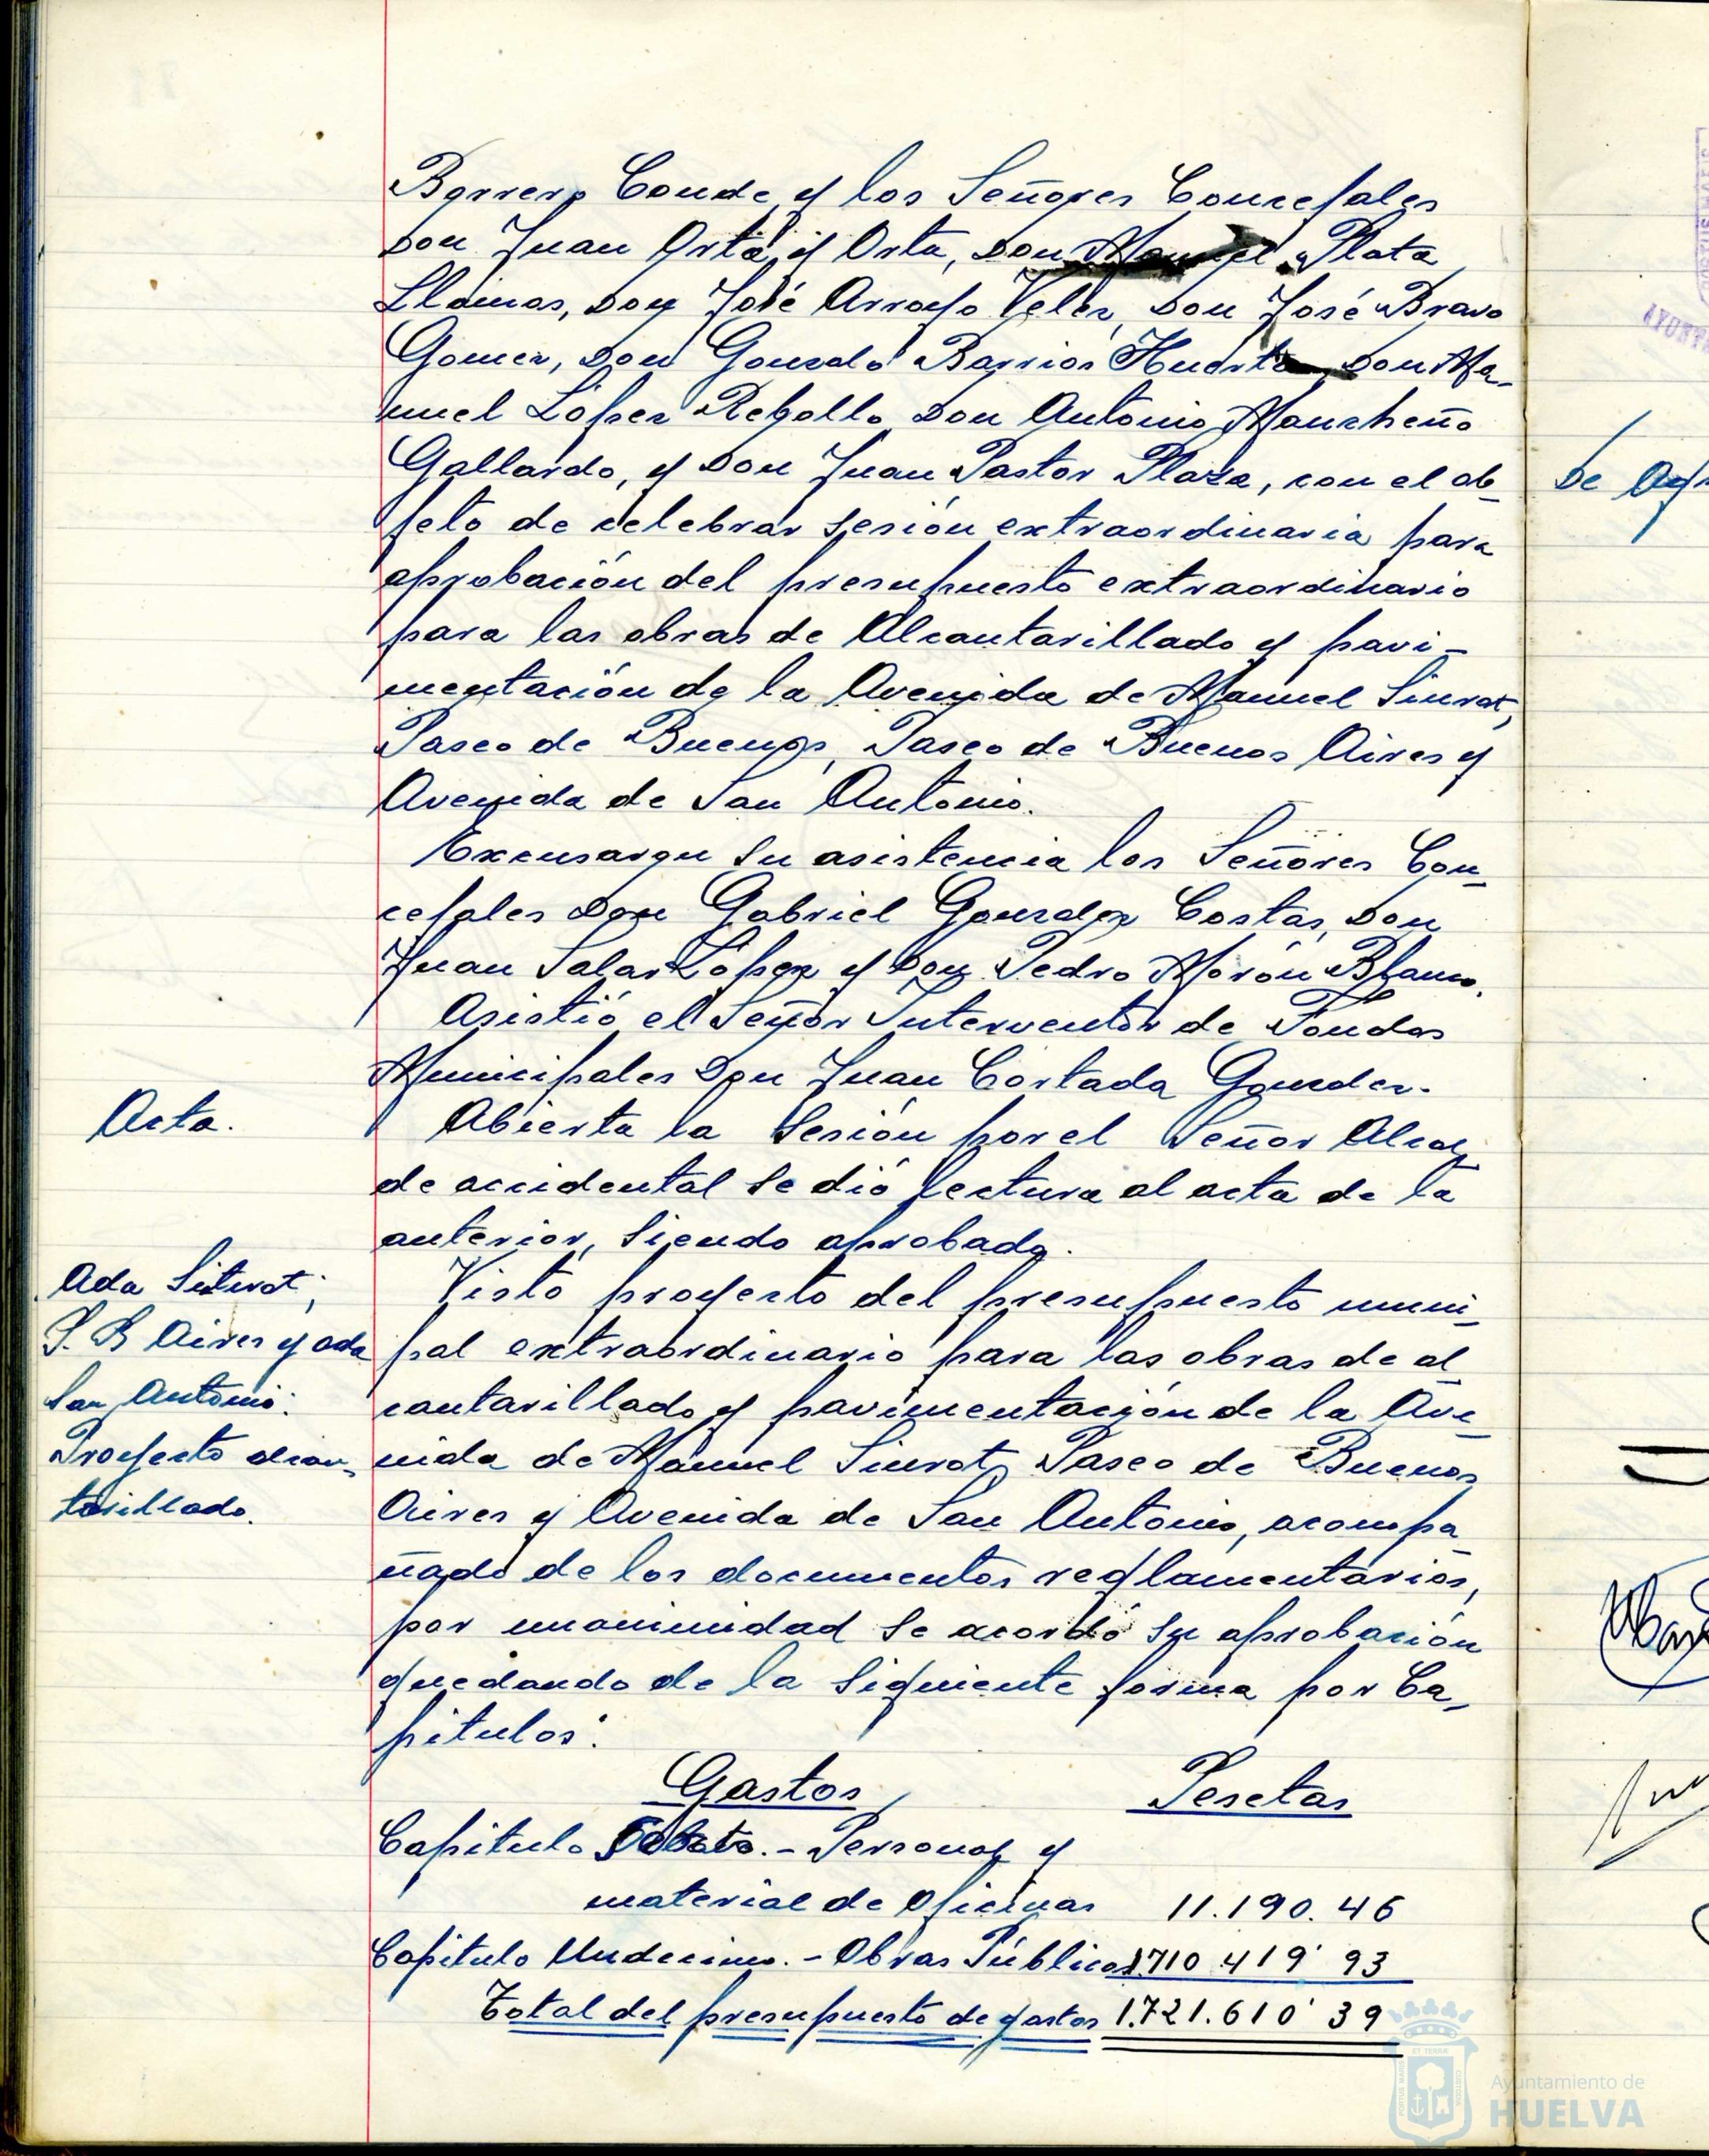 Barrero Conde, y los Señores Concejales
Don Juan Orta y Orta, Don Manuel Plata
Llamas, Don José Arroyo Velez, Don José Bravo
Gomez, Don Gonzalo Barrios Huerta, Don Ma-
nuel López Rebollo, Don Antonio Mancheño
Gallardo, y Don Juan Pastor Plaza, con el ob-
jeto de celebrar sesión extraordinaria para
aprobación del presupuesto extraordinario
para las obras de Alcantarillado y pavi-
mentación de la Avenida de Manuel Siurot,
Paseo de Buenos, Paseo de Buenos Aires y
Avenida de San Antonio.
Excusaron su asistencia los Señores Con-
cejales Don Gabriel Gonzalez Costas, Don
Juan Salas López y Don Pedro Morón Blanco.
Asistió el Señor Interventor de Fondos
Municipales Don Juan Cortada Gonzalez.
Acta.
Abierta la Sesión por el Señor Alcal-
de accidental se dió lectura al acta de la
anterior, siendo aprobada.
Ada Siurot;
P. B Aires y ada
San Antonio:
Proyecto alcan-
tarillado.
Visto proyecto del presupuesto muni-
pal extraordinario para las obras de al-
cantarillado y pavimentación de la Ave-
nida de Manuel Siurot, Paseo de Buenos
Aires y Avenida de San Antonio, acompa-
ñado de los documentos reglamentarios,
por unanimidad se acordó su aprobación
quedando de la siguiente forma por Ca-
pitulos:
Gastos Pesetas
Capitulo .- Personal y
material de Oficinas 11.190.46
Capitulo Undecimo.- Obras Públicas 1.710.419'93
Total del presupuesto de gastos 1.721.610'39
De
Ayuntamiento de
HUELVA